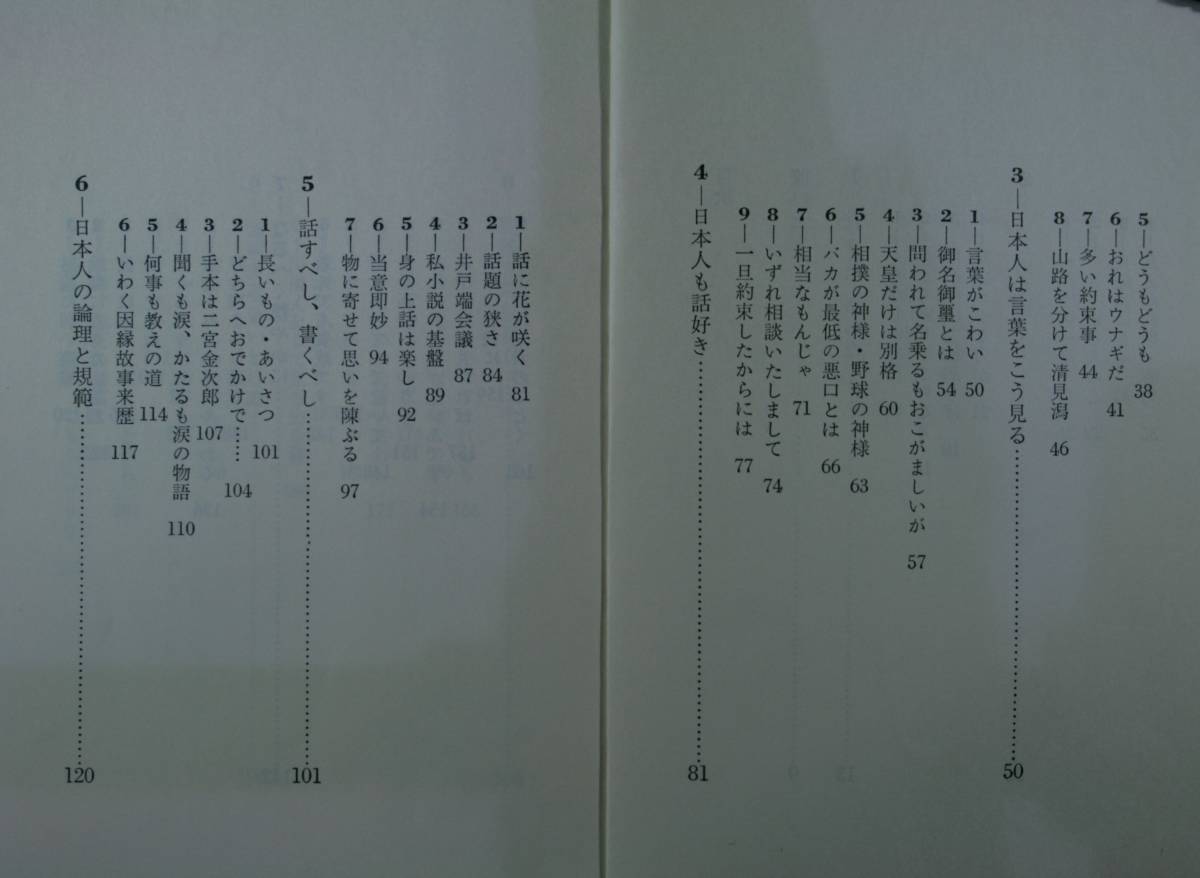 5—どうもどうも 38
6—おれはウナギだ 41
7—多い約束事 44
8—山路を分けて清見潟 46
3—日本人は言葉をこう見る……………………50
1—言葉がこわい 50
2—御名御璽とは 54
3—問われて名乗るもおこがましいが 57
4—天皇だけは別格 60
5—相撲の神様・野球の神様 63
6—バカが最低の悪口とは 66
7—相当なもんじゃ 71
8—いずれ相談いたしまして 74
9—一旦約束したからには 77
4—日本人も話好き……………………81
1—話に花が咲く 81
2—話題の狭さ 84
3—井戸端会議 87
4—私小説の基盤 89
5—身の上話は楽し 92
6—当意即妙 94
7—物に寄せて思いを陳ぶる 97
5—話すべし、書くべし……………………101
1—長いもの・あいさつ 101
2—どちらへおでかけで…… 104
3—手本は二宮金次郎 107
4—聞くも涙、かたるも涙の物語 110
5—何事も教えの道 114
6—いわく因縁故事来歴 117
6—日本人の論理と規範……………………120